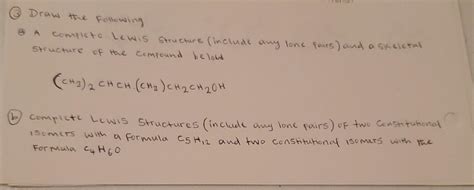 ③ Draw the Following
ⓐ A complete Lewis Structure (include any lone pairs) and a skeletal
structure of the compound below
(CH3)2 CHCH (CH3) CH2CH2OH
ⓑ complete Lewis Structures (include any lone pairs) of two Constitutional
isomers with a formula C5H12 and two constitutional isomers with the
Formula C4H6O